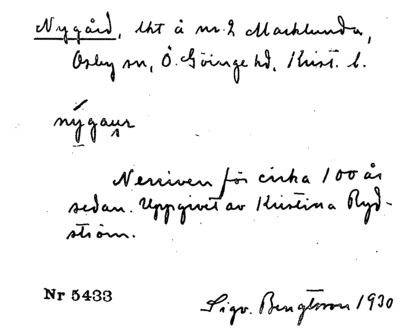 Nygård, lht å nr 2 Marklunda,
Osby sn, Ö. Göinge hd, Krist. l.
nýgaur
Nerriven för cirka 100 år
sedan. Uppgivet av Kristina Ryd-
ström.
Nr 5433 Sigv. Bengtsson 1930